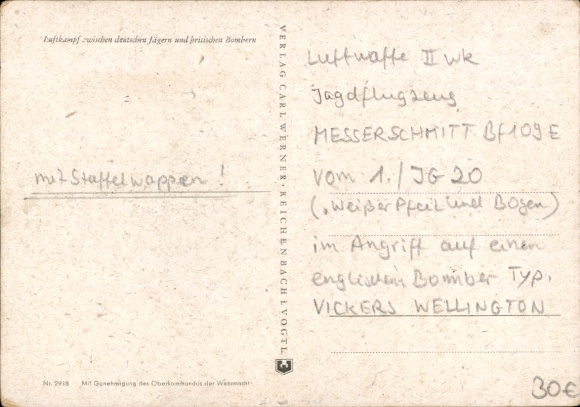 Luftkampf zwischen deutschen Jägern und britischen Bombern
mit Staffelwappen!
Nr. 2918 Mit Genehmigung des Oberkommandos der Wehrmacht
VERLAG CARL WERNER · REICHENBACH I. VOGTL.
Luftwaffe II WK
Jagdflugzeug
MESSERSCHMITT Bf 109 E
vom 1./JG 20
("weißer Pfeil und Bogen)
im Angriff auf einen
englischen Bomber Typ.
VICKERS WELLINGTON
30€